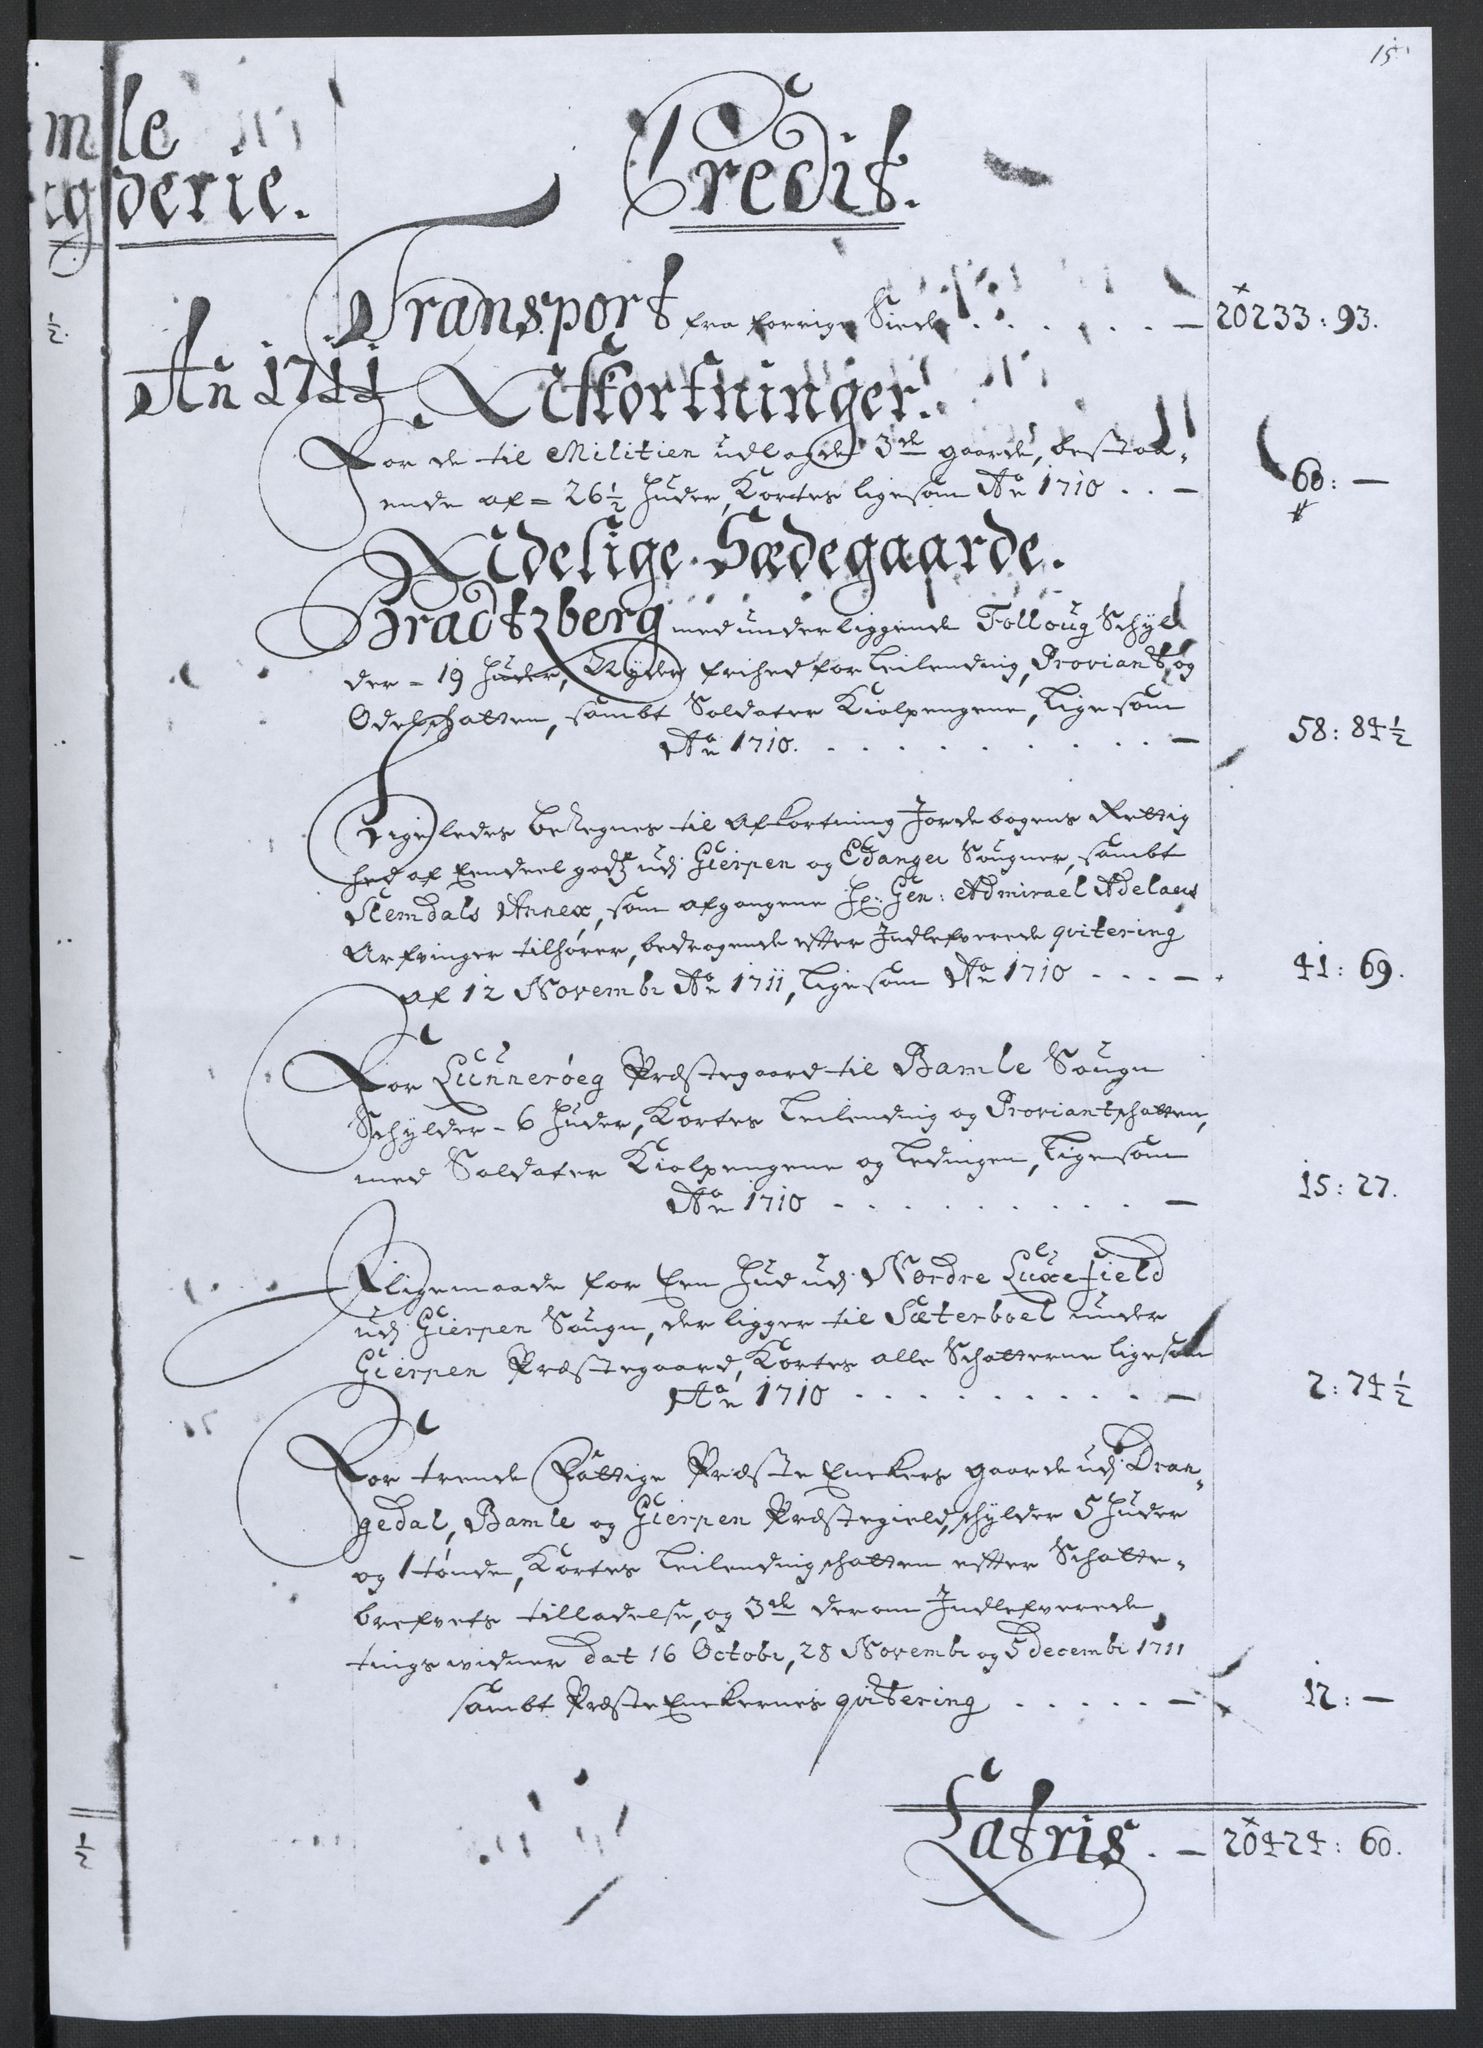 15
mle
igderie.
Credit.
Transport fra forrige Siede . . . . . . — 20233: 93.
Aⁿ 1711
Afkortninger.
For de til Militien udlagde 3de gaarde, bestaa-
ende af = 26½ Huder, Kortes ligesom Aō 1710 . . — 60: —
Adelige Sædegaarde.
Bradtzberg med underliggende Følloug Schyl
der = 19 Huder, Nyder frihed for Leilending, Proviant, og
Odelschatten, sambt Soldater Kiolpengene, ligesom
Aō 1710. . . . . . . . . . . — 58: 84½
Ligeledes beregnes til Afkortning Jordebogens Rettig
hed af Eendeel godz udj Gierpen og Edanger Sougner, sambt
Slemdals Annex, som afgangene Hr: Gen: Admirael Adelaers
Arfvinger tilhører, bedragende efter Indlefverede qvitering
af 12 Novembr Aō 1711, ligesom Aō 1710 . . . . — 41: 69.
For Lunnerøeg Præstegaard til Bamle Sougn
Schylder = 6 Huder, Kortes Leilending og Proviantschatten,
med Soldater Kiolpengene og Ledingen, ligesom
Aō 1710 . . . . . . . . . — 15: 27.
Iligemaade for Een Hud udj Nordre Luxefield
udj Gierpen Sougn, der ligger til Sæterboel under
Gierpen Præstegaard, Kortes alle Schatterne ligesom
Aō 1710 . . . . . . . . . . — 2: 74½
For trende Fattige Præste Enckers gaarde udj Dran-
gedal, Bamle og Gierpen Præstegield, schylder 5 Huder
og 1 tønde, Kortes Leilendingschatten efter Schatte-
brefvets tilladelse, og 3de derom Indlefverede
tingsvidner dat 16 Octobr, 28 Novembr og 5 decembr 1711
sambt Præste Enckernes qvitering . . . . . — 12: —
Latris. — 20424: 60.
½.
½